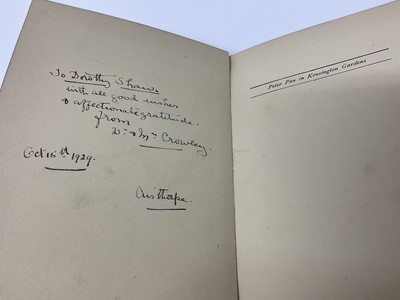 To Dorothy Shaw
with all good wishes
& affectionate gratitude.
from
Dr & Mrs Crowley.
Oct 15th 1929.
Austhorpe.
Peter Pan in Kensington Gardens